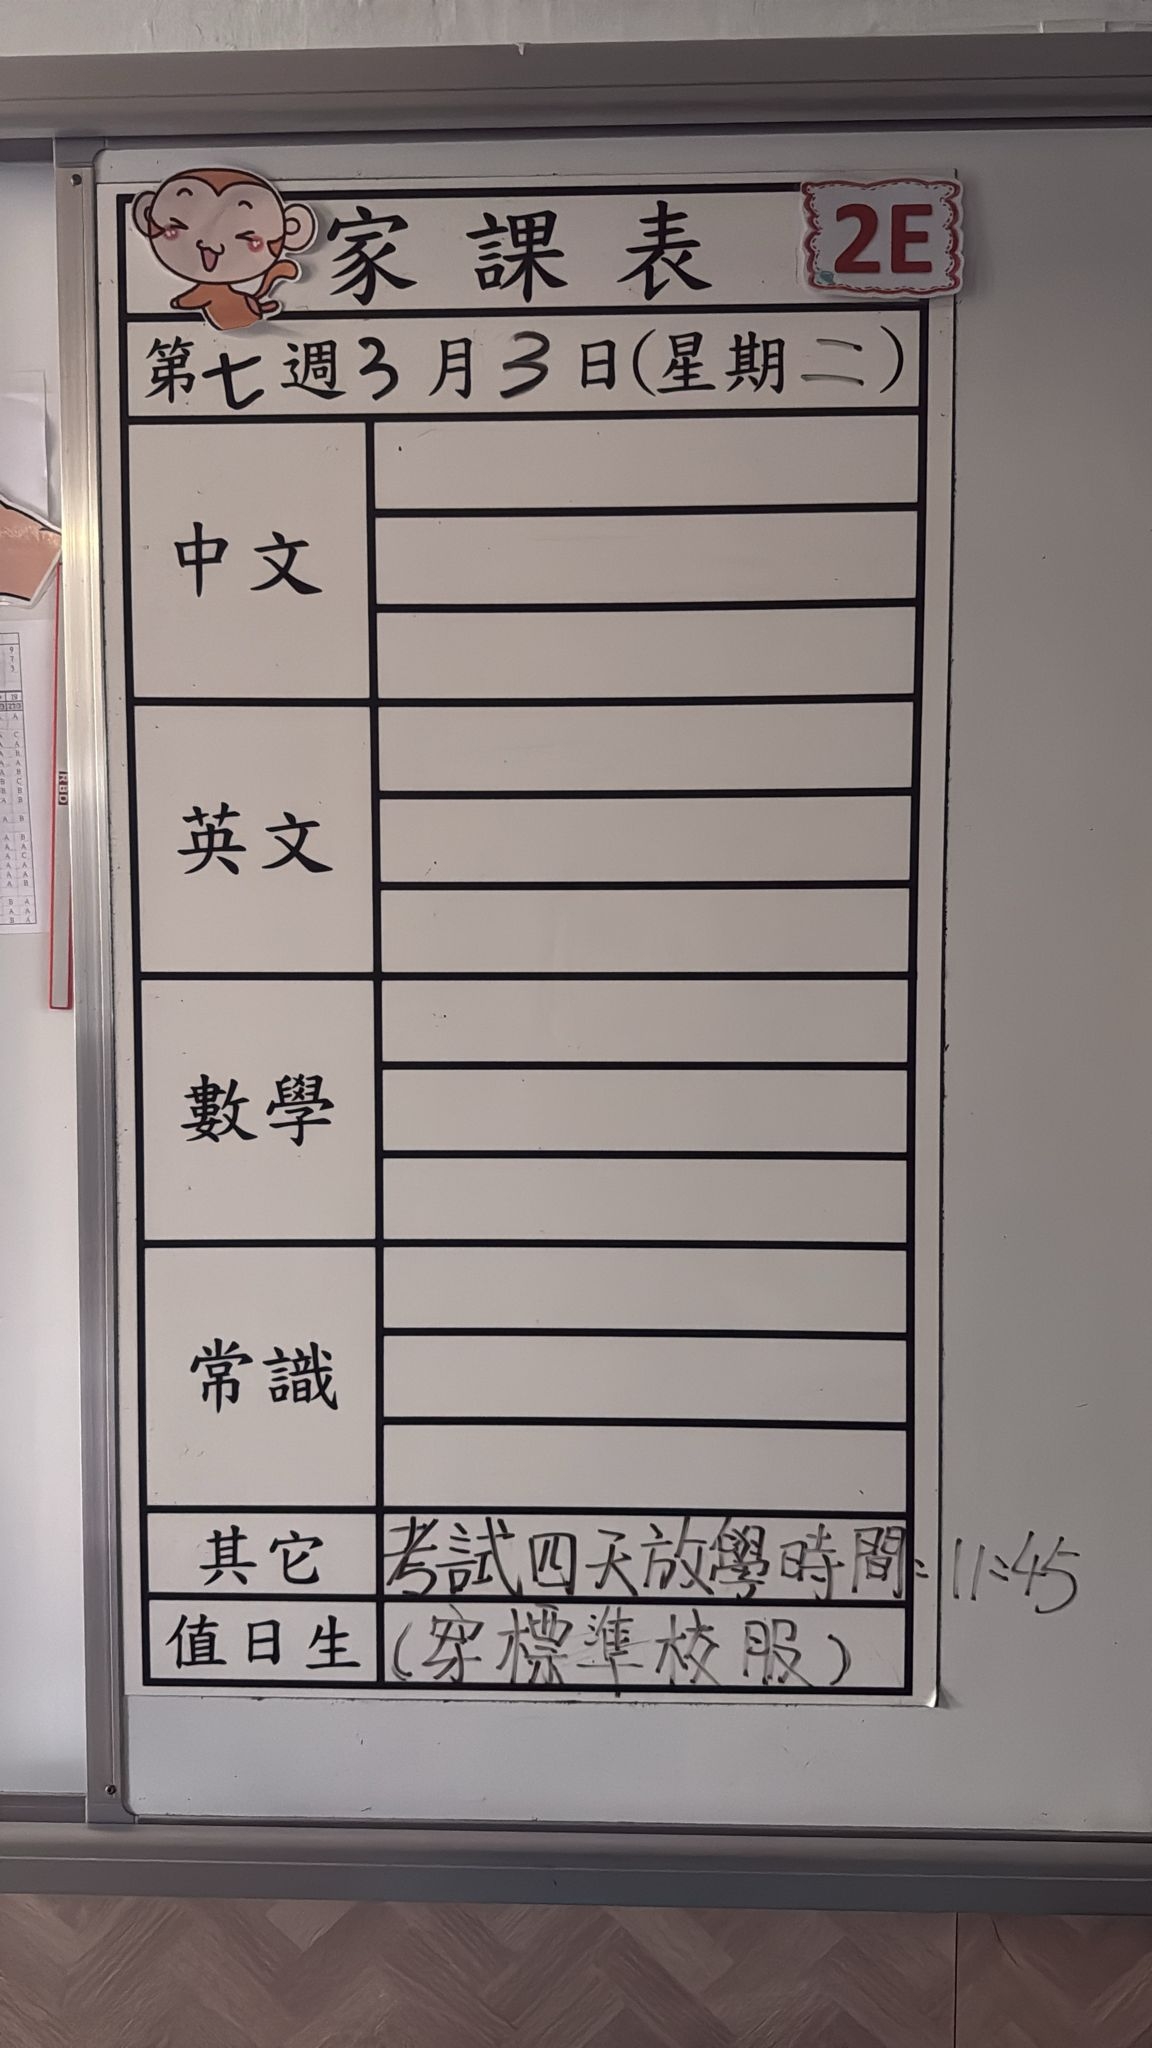 家課表
2E
第七週3月3日(星期二)
中文
英文
數學
常識
其它 考試四天放學時間:11:45
值日生 (穿標準校服)